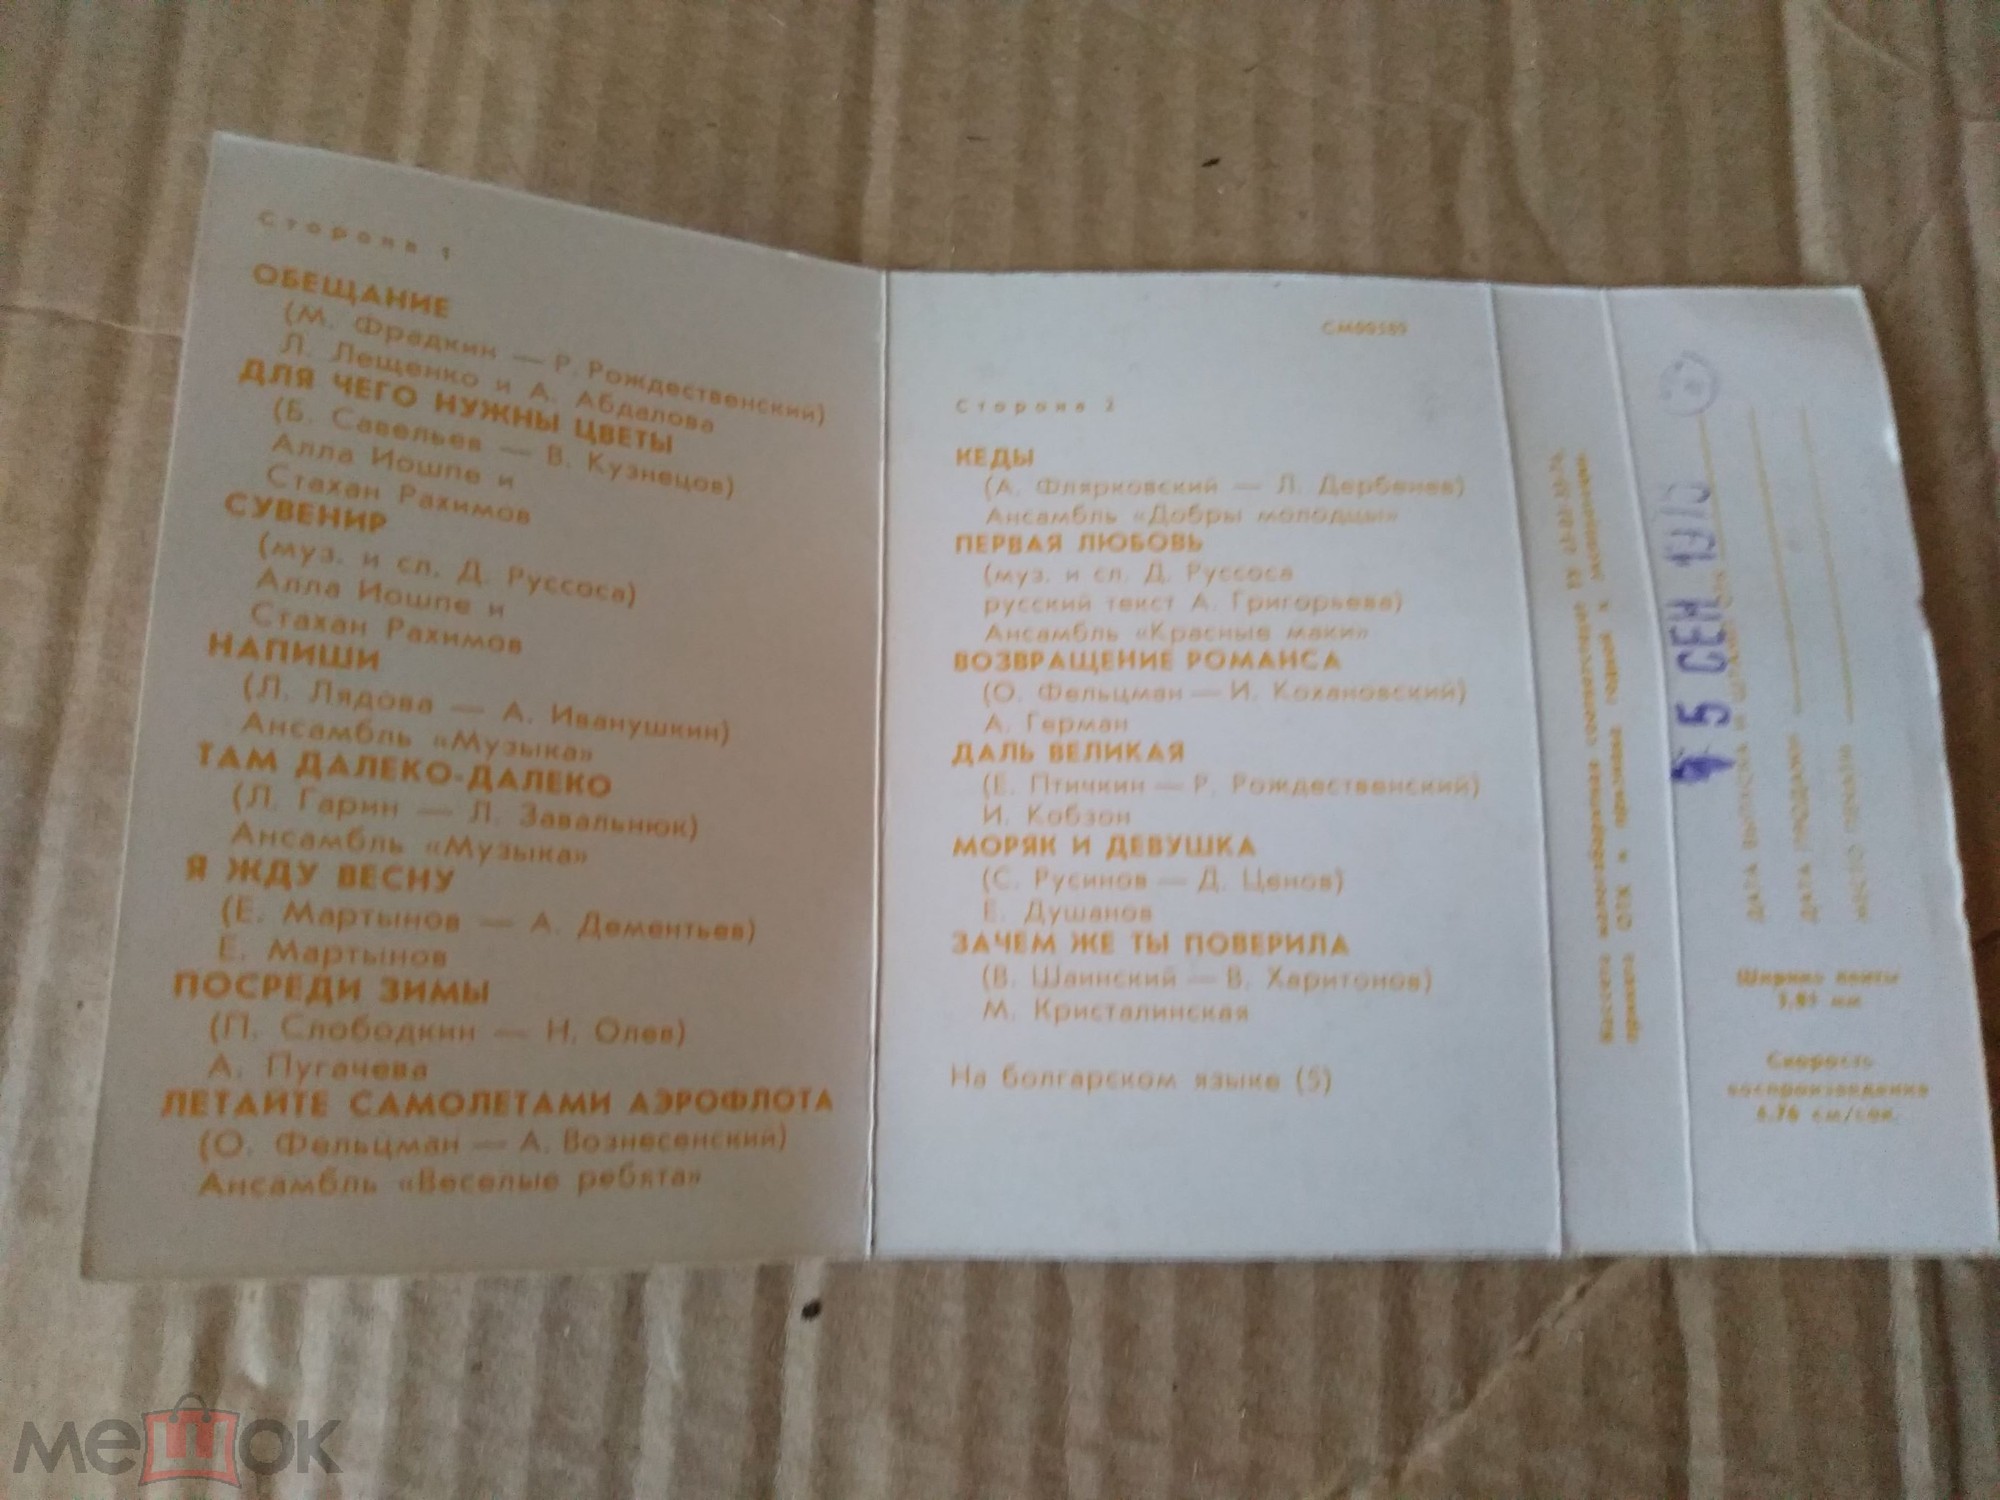 Сторона 1
ОБЕЩАНИЕ
(М. Фрадкин — Р. Рождественский)
Л. Лещенко и А. Абдалова
ДЛЯ ЧЕГО НУЖНЫ ЦВЕТЫ
(Б. Савельев — В. Кузнецов)
Алла Иошпе и
Стахан Рахимов
СУВЕНИР
(муз. и сл. Д. Руссоса)
Алла Иошпе и
Стахан Рахимов
НАПИШИ
(Л. Лядова — А. Иванушкин)
Ансамбль «Музыка»
ТАМ ДАЛЕКО-ДАЛЕКО
(Л. Гарин — Л. Завальнюк)
Ансамбль «Музыка»
Я ЖДУ ВЕСНУ
(Е. Мартынов — А. Дементьев)
Е. Мартынов
ПОСРЕДИ ЗИМЫ
(П. Слободкин — Н. Олев)
А. Пугачева
ЛЕТАЙТЕ САМОЛЕТАМИ АЭРОФЛОТА
(О. Фельцман — А. Вознесенский)
Ансамбль «Веселые ребята»
Сторона 2
КЕДЫ
(А. Флярковский — Л. Дербенев)
Ансамбль «Добры молодцы»
ПЕРВАЯ ЛЮБОВЬ
(муз. и сл. Д. Руссоса
русский текст А. Григорьева)
Ансамбль «Красные маки»
ВОЗВРАЩЕНИЕ РОМАНСА
(О. Фельцман — И. Кохановский)
А. Герман
ДАЛЬ ВЕЛИКАЯ
(Е. Птичкин — Р. Рождественский)
И. Кобзон
МОРЯК И ДЕВУШКА
(С. Русинов — Д. Ценов)
Е. Душанов
ЗАЧЕМ ЖЕ ТЫ ПОВЕРИЛА
(В. Шаинский — В. Харитонов)
М. Кристалинская
На болгарском языке (5)
Кассета магнитофонная соответствует ТУ
ОТК и признана годной к эксплуатации.
5 СЕН
ДАТА ВЫПУСКА И ШТАМП ОТК
ДАТА ПРОДАЖИ
МЕСТО ПЕЧАТИ
Ширина ленты
3,81 мм
Скорость
воспроизведения
4,76 см/сек.
мешок